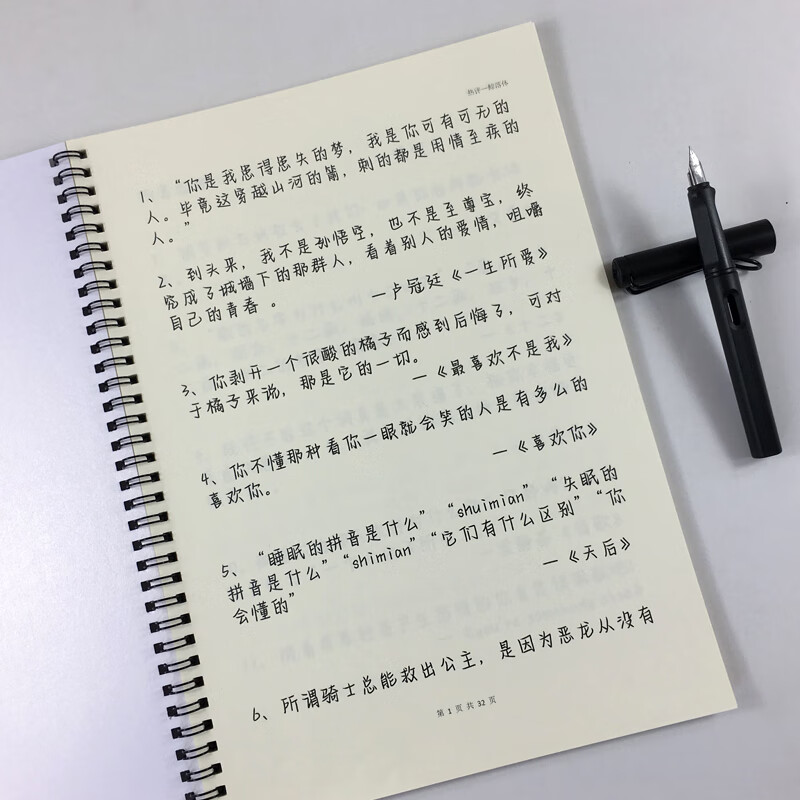 热评一醉落体
1、“你是我患得患失的梦，我是你可有可无的
人。毕竟这穿越山河的箭，刺的都是用情至疾的
人。”
2、到头来，我不是孙悟空，也不是至尊宝，终
究成了城墙下的那群人，看着别人的爱情，咀嚼
自己的青春。
一卢冠廷《一生所爱》
3、你剥开一个很酸的橘子而感到后悔了，可对
于橘子来说，那是它的一切。
一《最喜欢不是我》
4、你不懂那种看你一眼就会笑的人是有多么的
喜欢你。
一《喜欢你》
5、“睡眠的拼音是什么”“shuimian”“失眠的
拼音是什么”“shimian”“它们有什么区别”“你
会懂的”
一《天后》
6、所谓骑士总能救出公主，是因为恶龙从没有
第 1 页 共 32 页